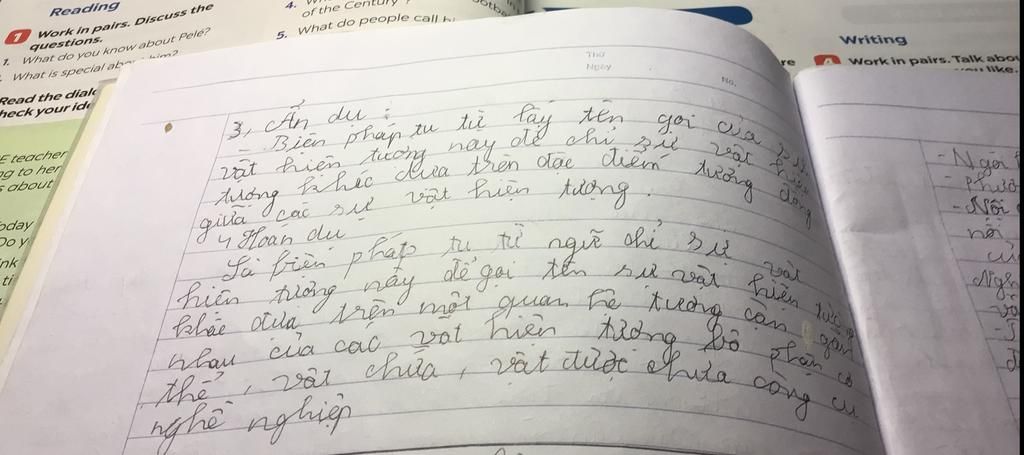 Reading
1 Work in pairs. Discuss the
questions.
1. What do you know about Pelé?
What is special him?
Read the
heck your
E teacher
ng to her
s about
oday
Do y
4.
of the Century
5. What do people call
Thứ
Ngày
No.
3, Ẩn dụ :
- Biện pháp tu từ lấy tên gọi của sự
vật hiện tượng này để chỉ sự vật hiện
tượng khác dựa trên đặc điểm tương đồng
giữa các sự vật hiện tượng.
4 Hoán dụ
Là biện pháp tu từ ngữ chỉ sự vật
hiện tượng này để gọi tên sự vật hiện tượng
khác dựa trên một quan hệ tương cận gần
nhau của các vật hiện tượng bộ phận cơ
thể, vật chứa, vật được chứa công cụ
nghề nghiệp
Writing
Work in pairs. Talk abou
like.
- Ngôi
- Phươ
- Nội
nói